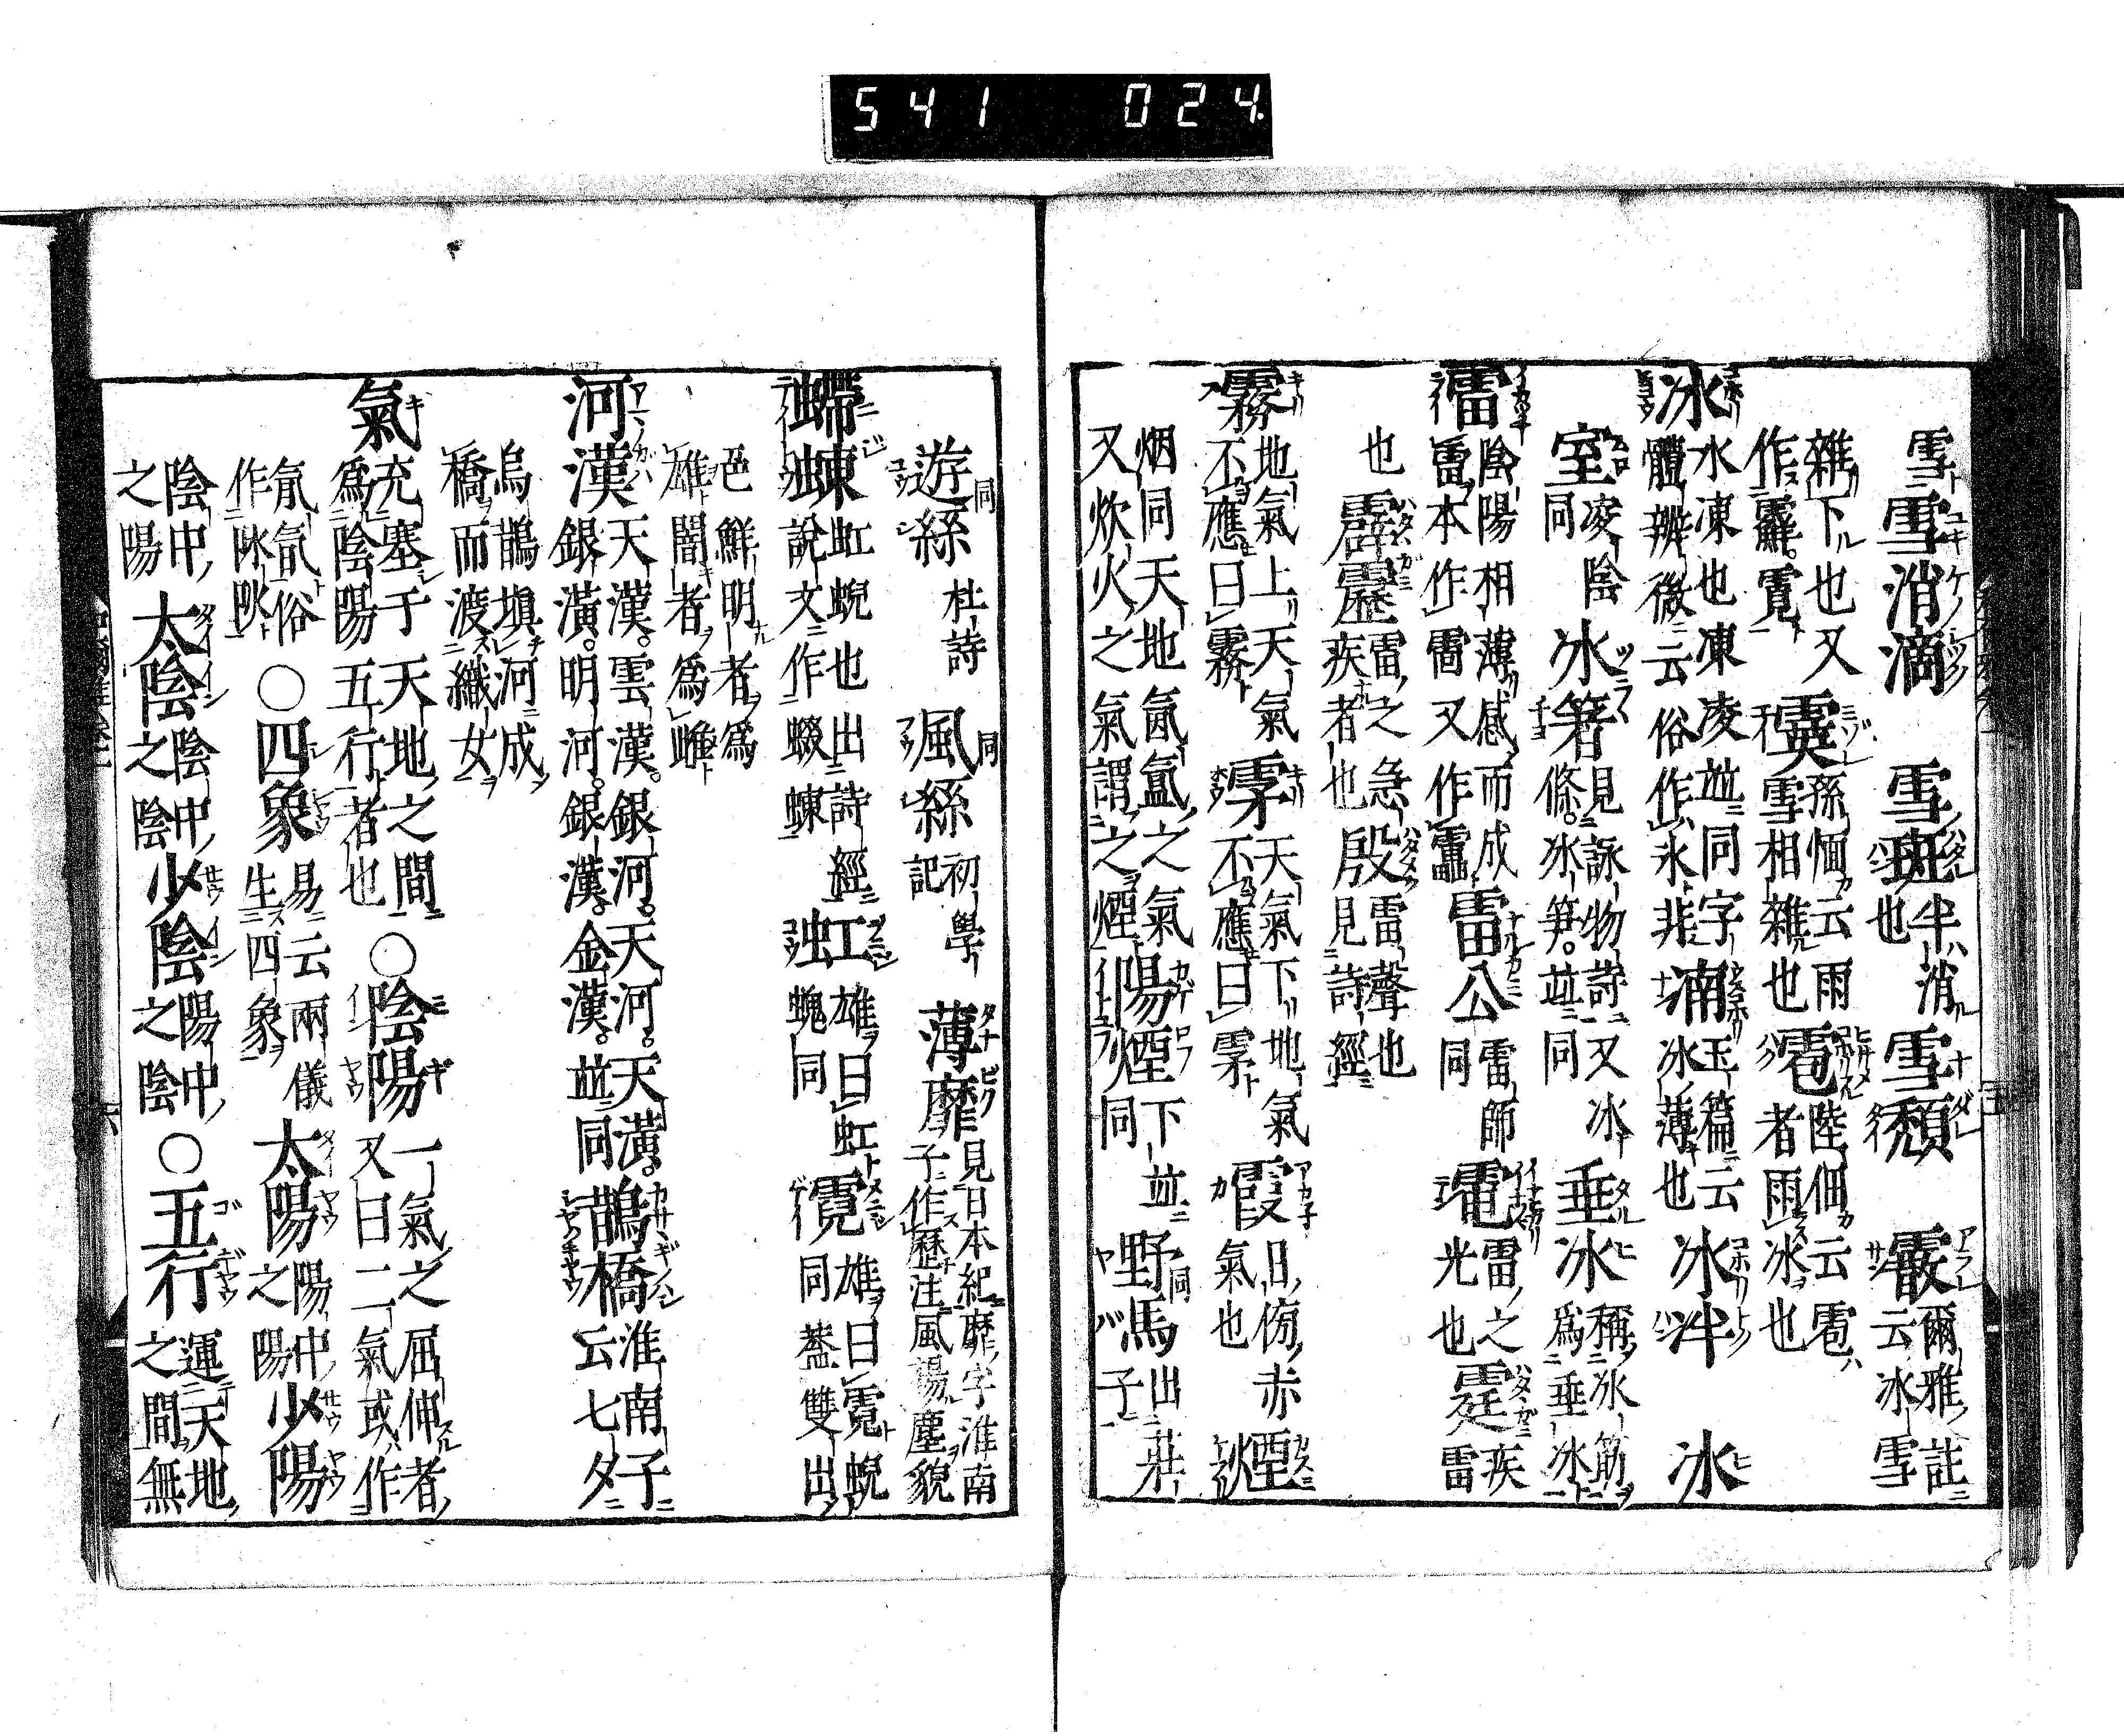 541 024.
雪 雪消滴 雪斑 半消也 雪頽 霰 爾雅註云冰雪
雜下也又作霽霓 霙 孫愐云雨雪相雜也 雹 陸佃云雹者雨冰也
冰 水凍也凍凌並同字體辨微云俗作氷非 凘 玉篇云冰薄也 冰泮 氷
室 凌陰同 冰箸 見詠物詩又冰條。冰笋。並同 垂冰 稱冰筋為垂冰
雷 陰陽相薄感而成靁本作畾又作靐 雷公 雷師同 電 雷之光也 霆 疾雷
也 霹靂 雷之急疾者也 殷 雷聲也見詩經
霧 地氣上天氣不應曰霧 雺 天氣下地氣不應曰雺 霞 日傍赤氣也 煙
烟同天地氤氳之氣又炊火之氣謂之煙 陽煙 下並同 野馬 同出莊子
遊絲 同杜詩 風絲 同初學記 薄靡 見日本紀靡字淮南子作歷注風揚塵貌
螮蝀 虹蜺也出詩經說文作蝃蝀 虹 雄曰虹蚣同 霓 雄曰霓蜺同蓋雙出
色鮮明者為雄闇者為雌
河漢 天漢。雲漢。銀河。天河。天潢。銀潢。明河。銀漢。金漢。並同 鵲橋 淮南子云七夕
烏鵲填河成橋而渡織女
氣 充塞于天地之間為陰陽五行者也 ○陰陽 一氣之屈伸者又曰二氣或作
氜 俗作 ○四象 易云兩儀生四象 太陽 陽中之陽 少陽
陰中之陽 太陰 陰中之陰 少陰 陽中之陰 ○五行 運天地之間無